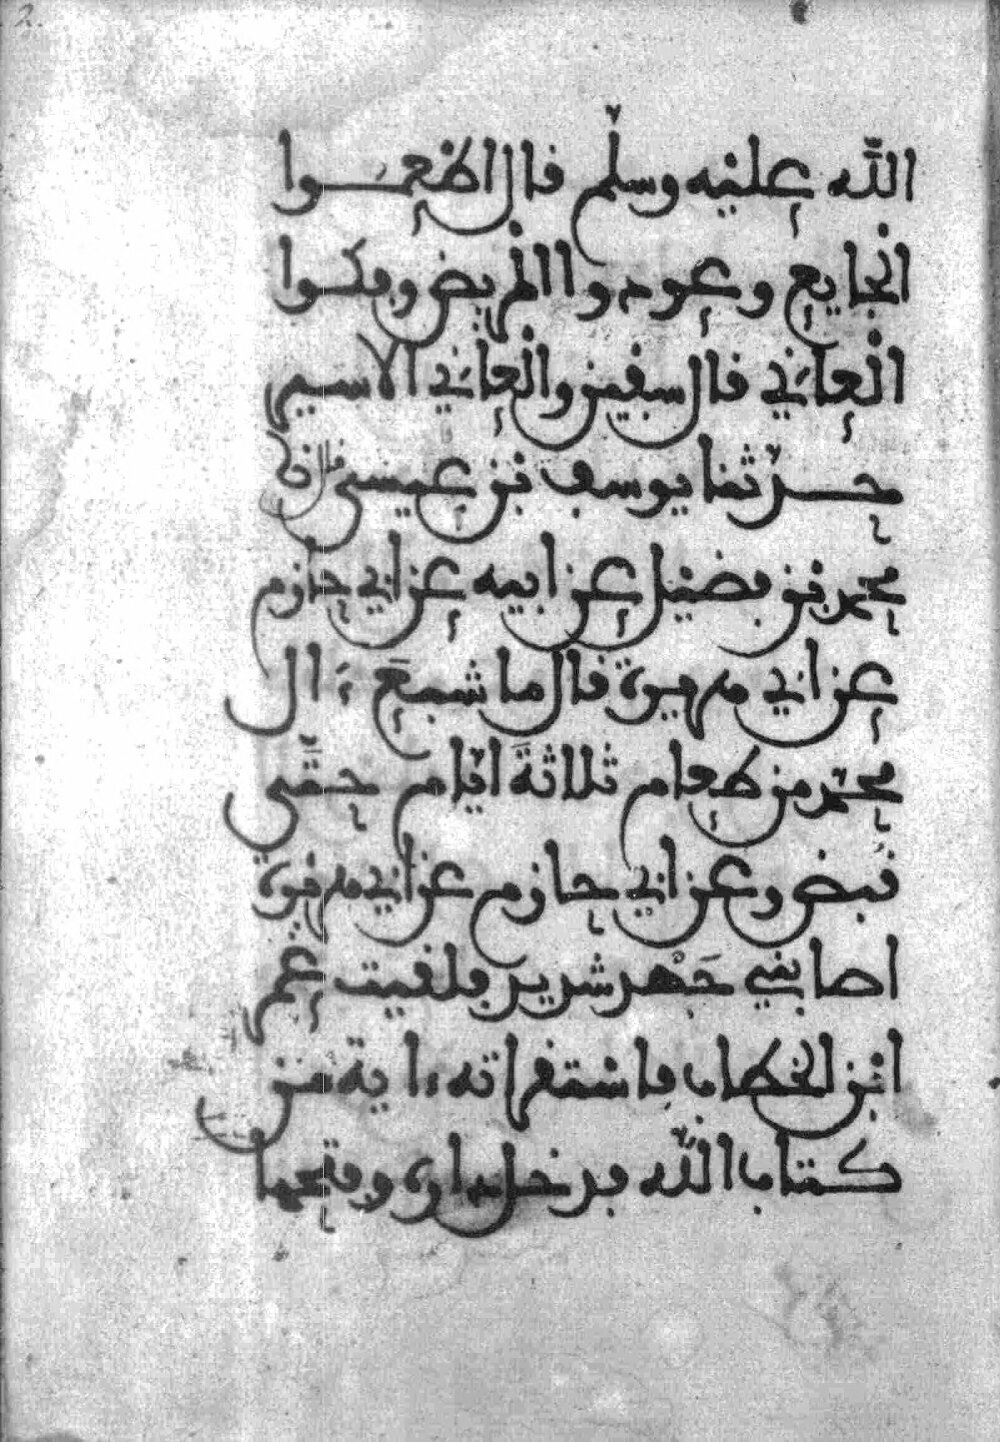 2.
الله عليه وسلم قال اطعموا
الجايع وعودوا المريض وفكوا
العاني قال سفين والعاني الاسير
حدثنا يوسف بن عيسى نا
محمد بن فضيل عن ابيه عن ابي حازم
عن ابي هريرة قال ما شبع ءال
محمد من طعام ثلاثة ايام حتى
قبض وعن ابي حازم عن ابي هريرة
اصابني جهد شديد فلقيت عمر
ابن الخطاب فاستقراته ءاية من
كتاب الله فدخل داره وفتحها